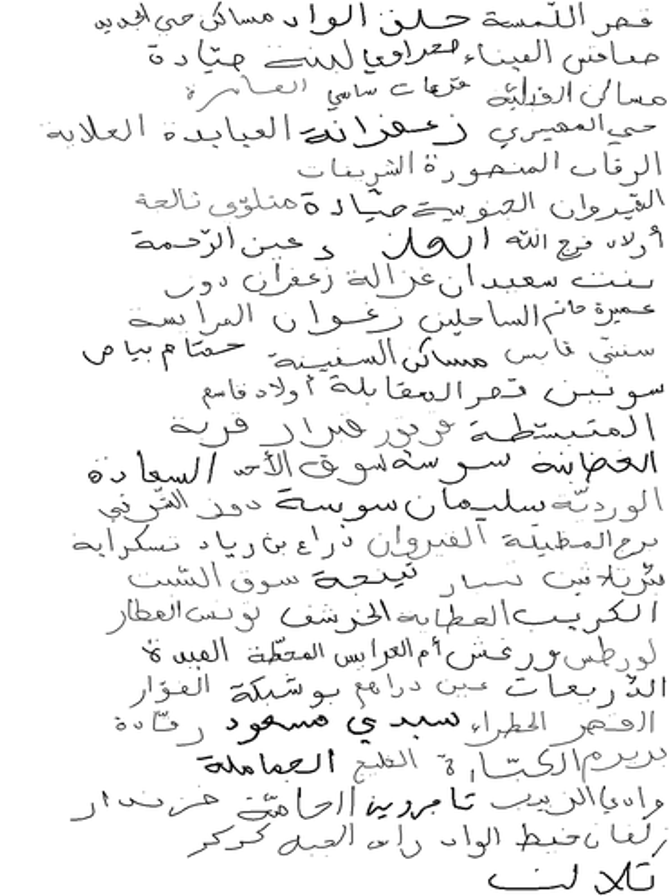 قصر اللّمسة حلق الواد مساكن حي الجديد
صفاقس الميناء صحراوي لبنة صيّادة
مساكن القبلية قرعات ساسي العامرة
حي المصيري زعفرانة العبابدة العلاية
الرقاب المنصورة الشريفات
القيروان الجنوبية صيادة منلوّي نالحة
أولاد فرج الله عين الرّحمة
بنت سعيدان غزالة زعفران دوز
عميرة حاتم الساحلين زغوان المرابسة
سنتي قابس مساكن السفينة حمّام بياض
سونين قصر المقابلة أولاد قاسم
المتبسّطة ضرار قرية
الغضابنة سوسة سوق الأحد السعادة
الورديّة سليمان سوسة دوز الشّرقي
برج المطيلة القيروان ذراع بن زياد تسكراية
بئر ثلاثين نسار تينجة سوق السّبت
الكريب العطاية الخرشف تونس العطار
لورطس ورغش أم العرايس المحطّة العبدة
الذّريعات عين دراهم بوشبكة الفوّار
القصر الخطراء سيدي مسعود رقّادة
بريرم الكتّارة الخليج الجماملة
وادي الزيت تامروين الحامّة خزندار
زلفان خيط الواد راس الجبل كركر
تلالت